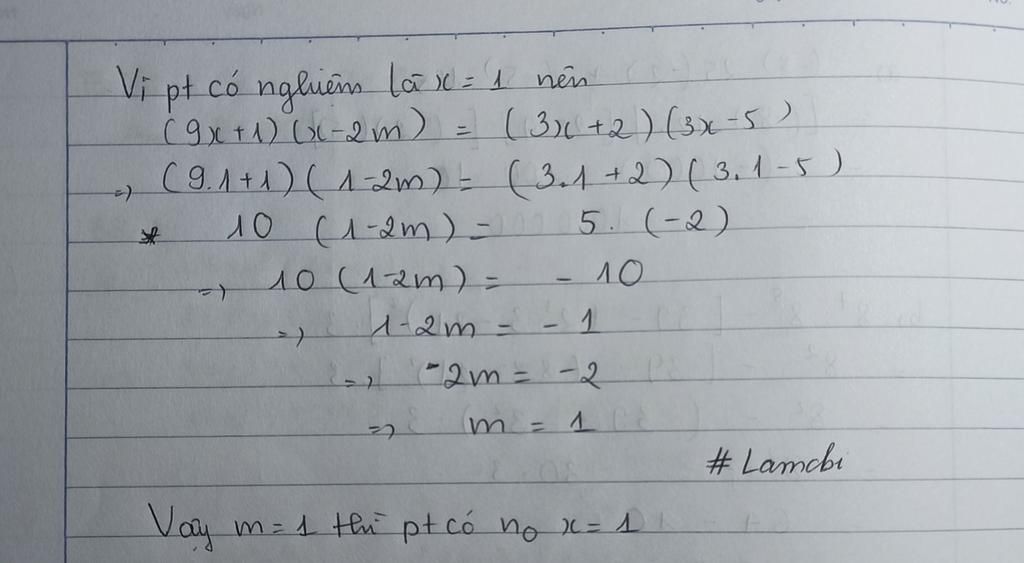 Vì pt có nghiệm là x = 1 nên
(9x+1)(x-2m) = (3x+2)(3x-5)
=> (9.1+1)(1-2m) = (3.1+2)(3.1-5)
* 10 (1-2m) = 5. (-2)
=> 10 (1-2m) = - 10
=> 1-2m = - 1
=> -2m = -2
=> m = 1
# Lamcbi
Vậy m = 1 thì pt có no x = 1